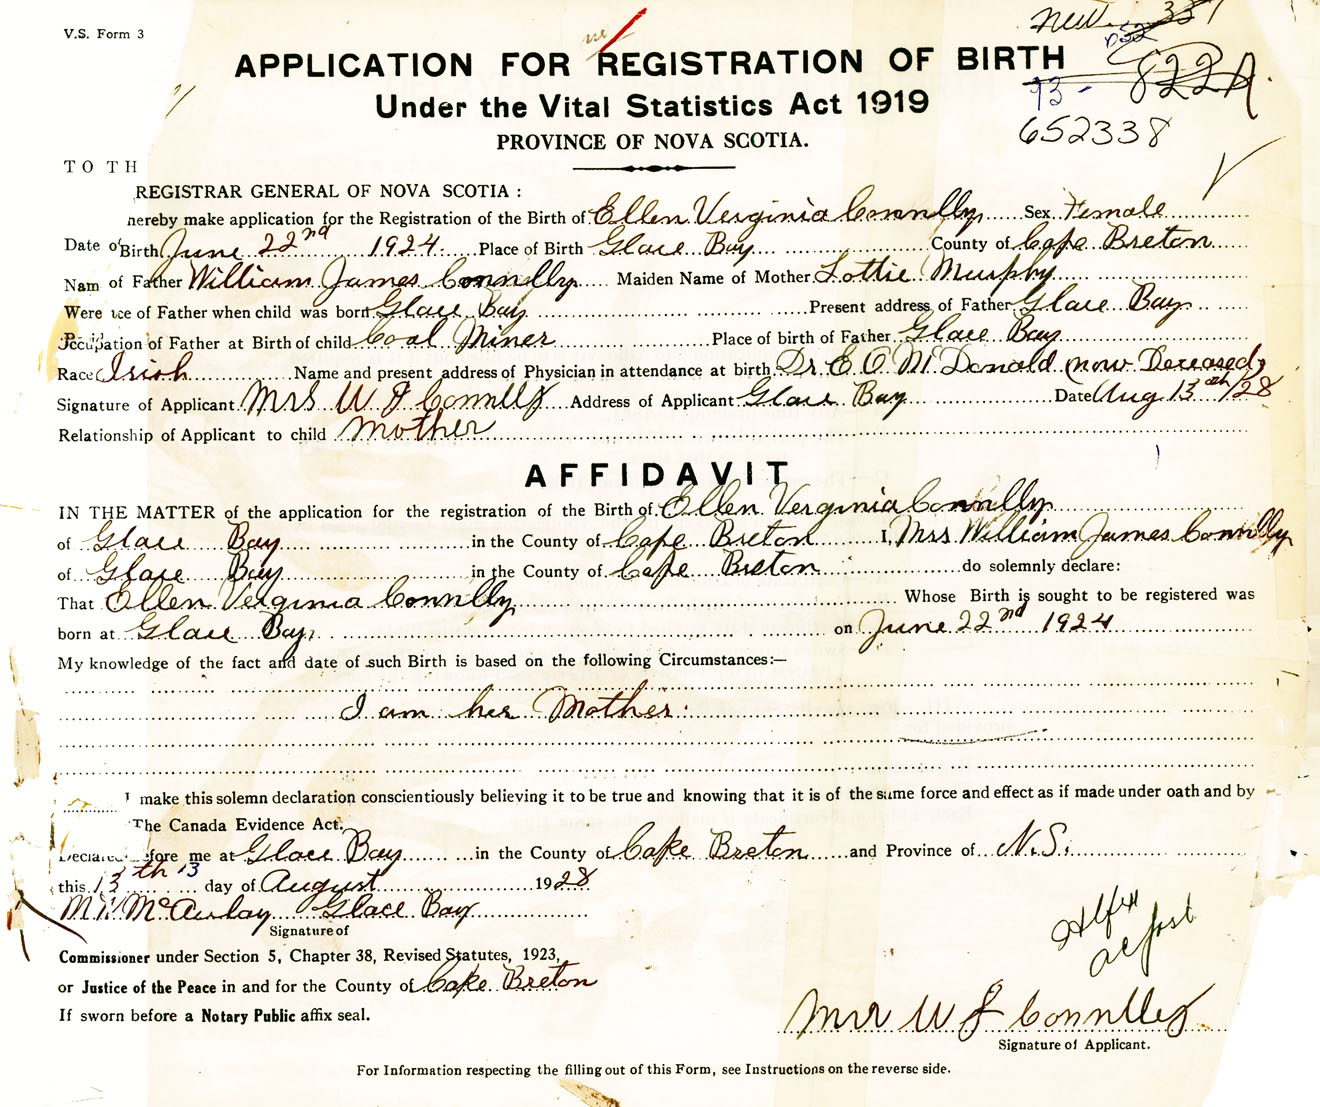 V.S. Form 3
new 331
APPLICATION FOR REGISTRATION OF BIRTH
Under the Vital Statistics Act 1919
93 - 822A
PROVINCE OF NOVA SCOTIA.
652338
TO TH
REGISTRAR GENERAL OF NOVA SCOTIA :
hereby make application for the Registration of the Birth of Ellen Verginia Connlly Sex Female
Date of Birth June 22nd 1924 Place of Birth Glace Bay County of Cape Breton
Nam of Father William James Connlly Maiden Name of Mother Lottie Murphy
Were ce of Father when child was born Glace Bay Present address of Father Glace Bay
Occupation of Father at Birth of child Coal Miner Place of birth of Father Glace Bay
Race Irish Name and present address of Physician in attendance at birth Dr. E. O. McDonald (now Deceased)
Signature of Applicant Mrs W J Connlly Address of Applicant Glace Bay Date Aug 13th/28
Relationship of Applicant to child Mother
AFFIDAVIT
IN THE MATTER of the application for the registration of the Birth of Ellen Verginia Connlly
of Glace Bay in the County of Cape Breton I, Mrs William James Connlly
of Glace Bay in the County of Cape Breton do solemnly declare:
That Ellen Verginia Connlly Whose Birth is sought to be registered was
born at Glace Bay, on June 22nd 1924
My knowledge of the fact and date of such Birth is based on the following Circumstances:—
I am her Mother.
I make this solemn declaration conscientiously believing it to be true and knowing that it is of the same force and effect as if made under oath and by
The Canada Evidence Act.
Declared before me at Glace Bay in the County of Cape Breton and Province of N.S.
this 13th 13 day of August 1928
M. W. McAulay Glace Bay
Signature of
Commissioner under Section 5, Chapter 38, Revised Statutes, 1923,
or Justice of the Peace in and for the County of Cape Breton
If sworn before a Notary Public affix seal.
Mrs W J Connlly
Signature of Applicant.
For Information respecting the filling out of this Form, see Instructions on the reverse side.